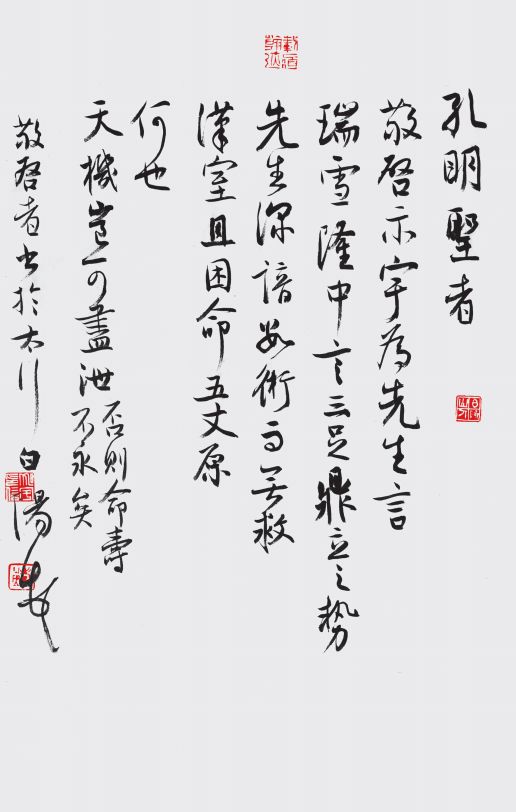 孔明聖者
敬启示宇為先生言
瑞雪隆中言三足鼎立之勢
先生深諳數術而無救
漢室且困命五丈原
何也
天機豈可盡泄
否則命壽
不永矣
敬启者書於太行